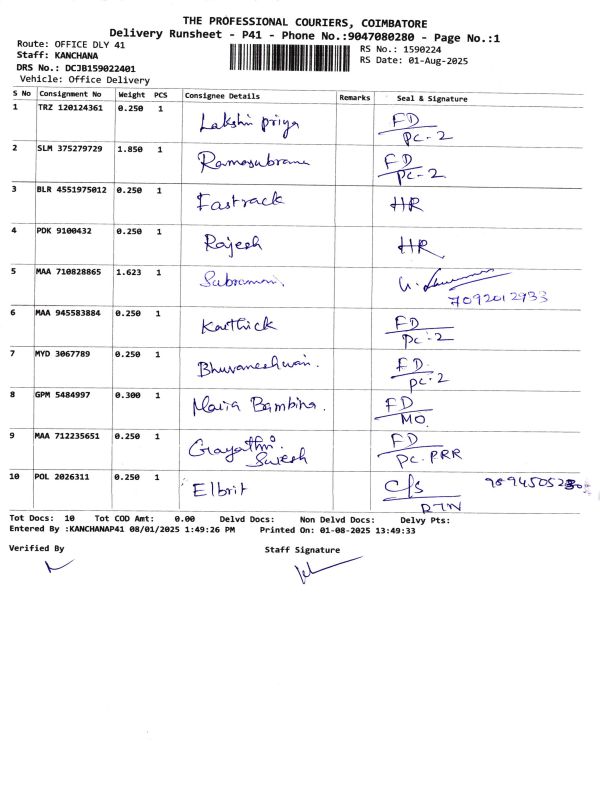 THE PROFESSIONAL COURIERS, COIMBATORE
Delivery Runsheet - P41 - Phone No.:9047080280 - Page No.:1
Route: OFFICE DLY 41
Staff: KANCHANA
DRS No.: DCJB159022401
Vehicle: Office Delivery
RS No.: 1590224
RS Date: 01-Aug-2025
S No Consignment No Weight PCS Consignee Details Remarks Seal & Signature
1 TRZ 120124361 0.250 1 Lakshmi priya FD
PC-2
2 SLM 375279729 1.850 1 FD
PC-2
3 BLR 4551975012 0.250 1 Fastrack HR
4 PDK 9100432 0.250 1 Rajesh HR
5 MAA 710828865 1.623 1 Subramani.
7092012933
6 MAA 945583884 0.250 1 Karthick FD
PC-2
7 MYD 3067789 0.250 1 Bhuvaneshwari. FD.
PC-2
8 GPM 5484997 0.300 1 Maria Bambina. FD
MO.
9 MAA 712235651 0.250 1 Gayathri. FD
Suresh PC-PRR
10 POL 2026311 0.250 1 Elbrit C/s
RTN
Tot Docs: 10 Tot COD Amt: 0.00 Delvd Docs: Non Delvd Docs: Delvy Pts:
Entered By :KANCHANAP41 08/01/2025 1:49:26 PM Printed On: 01-08-2025 13:49:33
Verified By Staff Signature